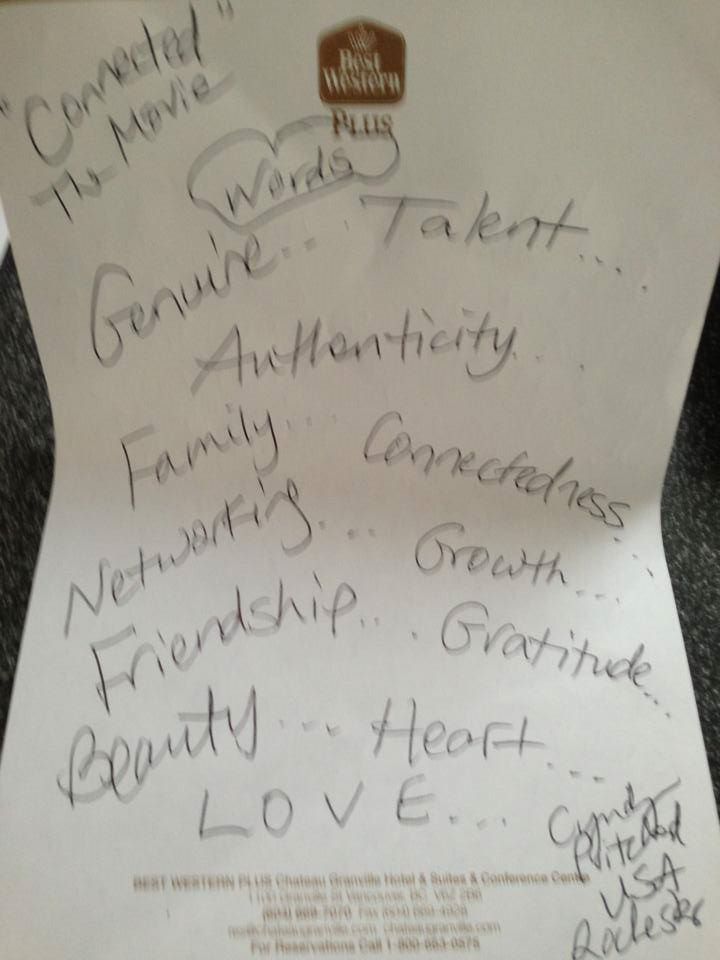 "Connected"
The Movie
Best
Western
PLUS
Words
Genuine... Talent....
Authenticity...
Family... Connectedness...
Networking... Growth...
Friendship... Gratitude...
Beauty... Heart...
LOVE...
Cyndy
Pritchard
USA
Rochester
BEST WESTERN PLUS Chateau Granville Hotel & Suites & Conference Centre
Granville St Vancouver, BC
For Reservations Call 1-800-663-0575